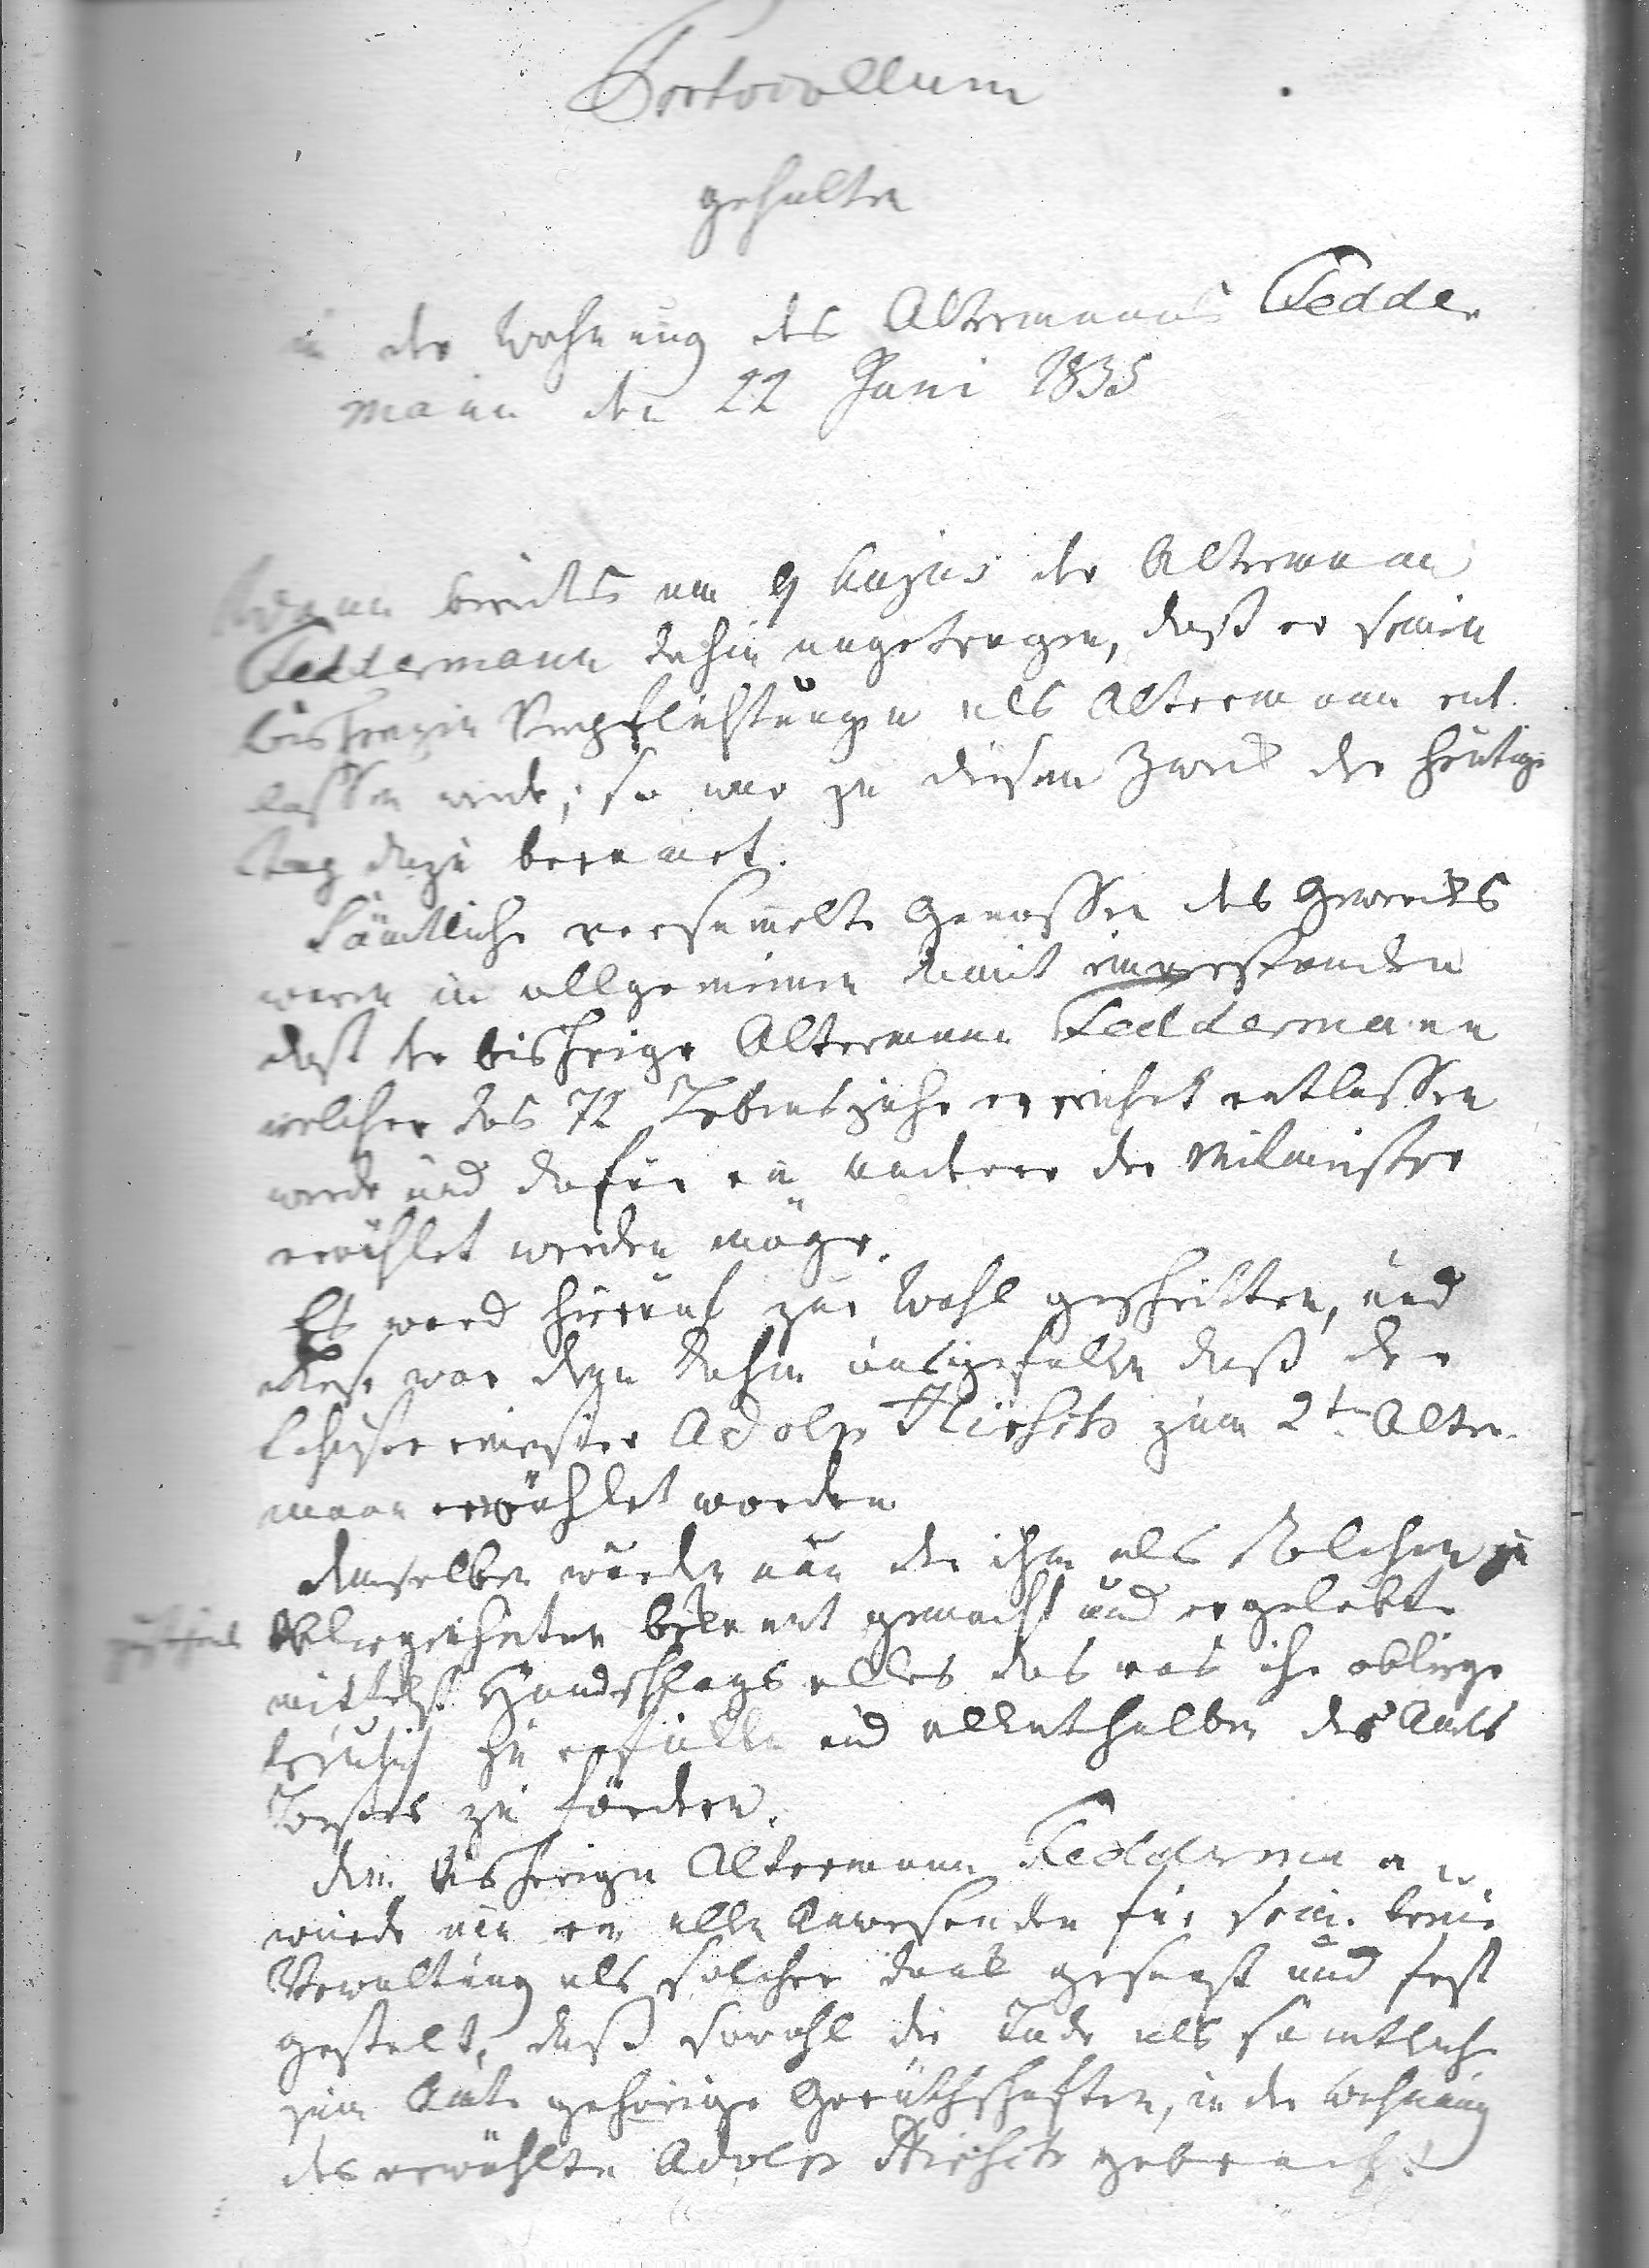 Protocollum
gehalten
in der Wohnung des Altermanns Fedder
mann den 22 Juni 1835
bereits am 9 hujus der Altermann
Feddermann dahin angetragen, daß er seinen
bisherigen Verpflichtungen als Altermann ent
lassen werde; so war zu diesem Zweck der heutige
Tag dazu beramet.
Sämtliche versammelte Genossen des Gewerks
waren im allgemeinen damit einverstanden
daß der bisherige Altermann Feddermann
welcher das 72 Lebensjahr erreicht entlassen
werde und dafür ein anderer der Mitmeister
erwählet werden möge.
Es ward hierauf zur Wahl geschritten, und
diese war denn dahin ausgefallen daß der
meister Adolph zum 2ten Alter
mann erwählet worden
demselben wurden nun die ihm als solchen zu
Obliegenheiten bekannt gemacht und er gelobte
mittelst Handschlags alles das was ihm obliege
treulich zu erfüllen und allenthalben des Amts
Bestes zu fördern.
dem bisherigen Altermann Feddermann
wurde nun von allen Anwesenden für seine treue
Verwaltung als solcher dank gesagt und fest
gestelt, daß sowohl die Lade als sämtliche
zum Amte gehörige Geräthschaften, in der Wohnung
des erwählten Adolph gebracht